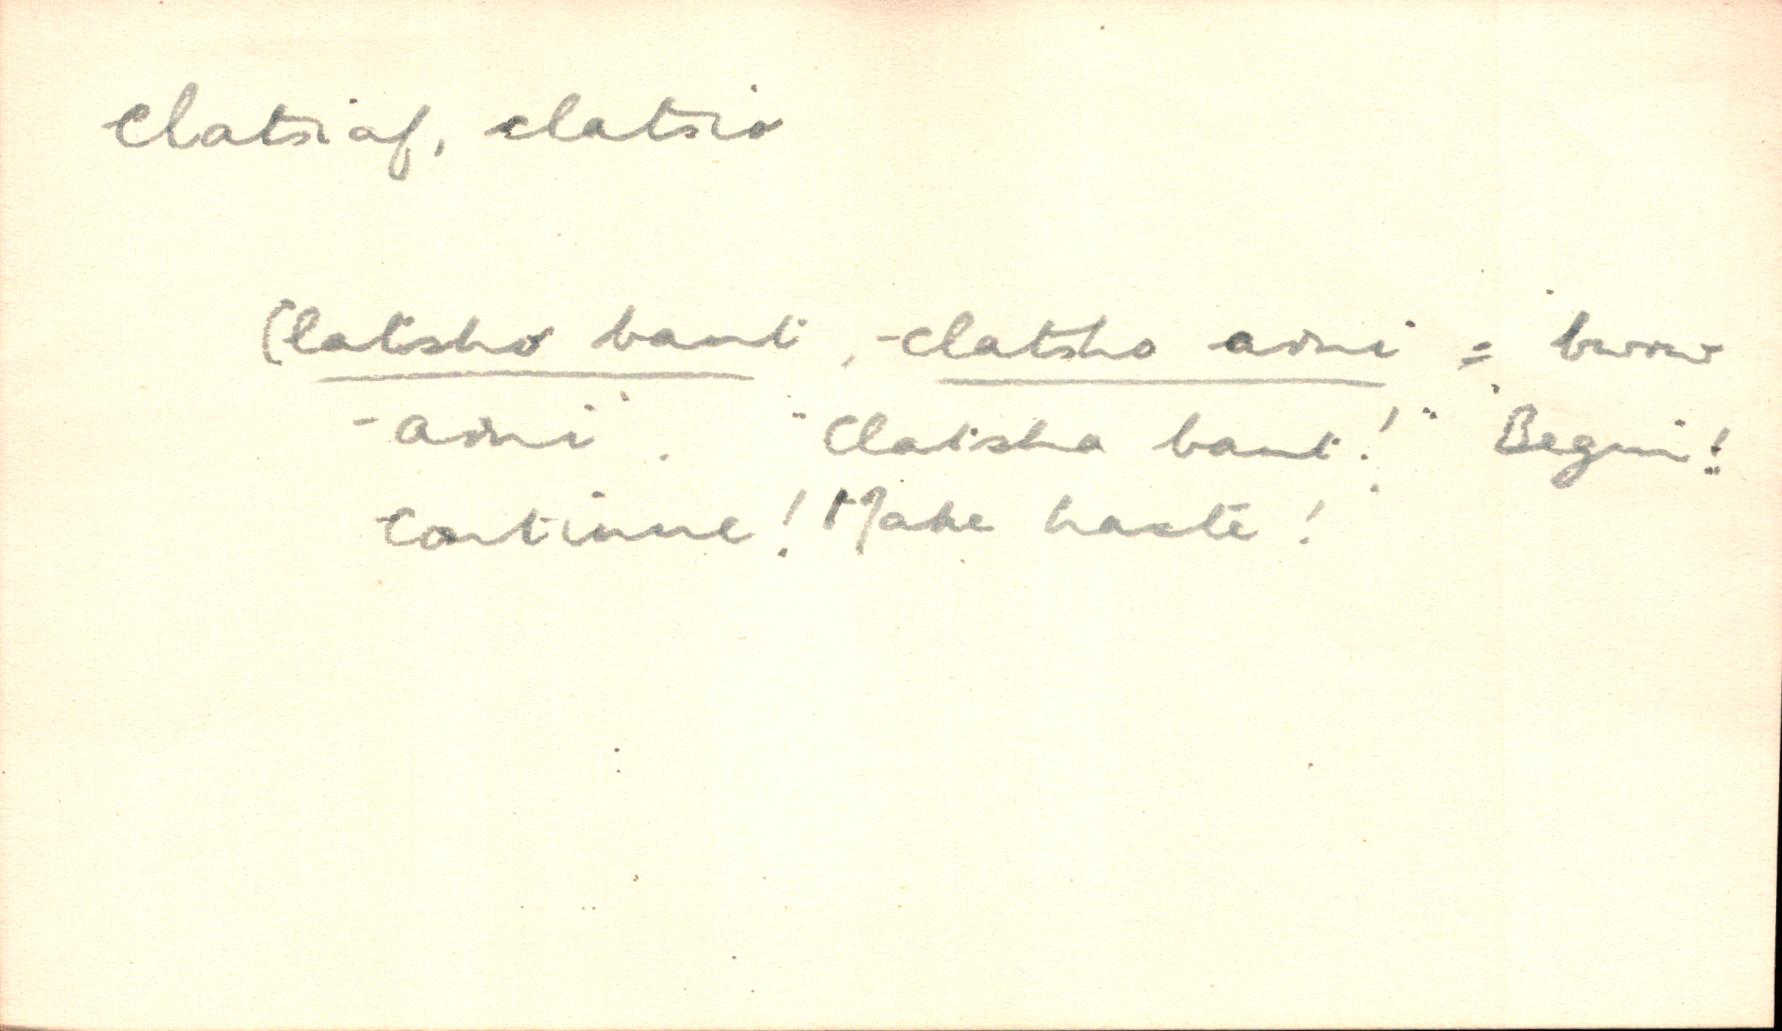 clatsiaf, clatsio
Clatsho bant, - clatsho arni = bwrw
- arni. "Clatsha bant!" Begin!
continue! Make haste!